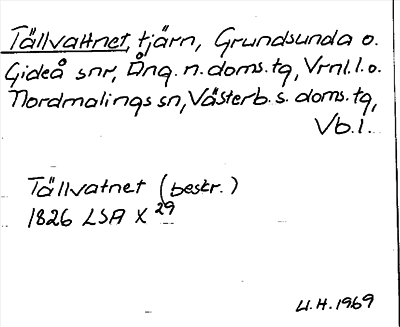 Tällvattnet, tjärn, Grundsunda o.
Gideå snr, Ång. n. doms. tg, Vrnl. l. o.
Nordmalings sn, Västerb. s. doms. tg,
Vb. l.
Tällvatnet (beskr.)
1826 LSA X 29
U.H. 1969